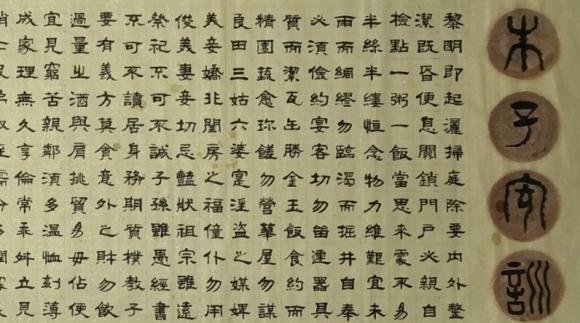 朱子家訓
黎明即起灑掃庭除要內外整
潔既昏便息關鎖門戶必親自
檢點一粥一飯當思來處不易
半絲半縷恆念物力維艱宜未
雨而綢繆勿臨渴而掘井自奉
必須儉約宴客切勿留連器具
質而潔瓦缶勝金玉飲食約而
精園蔬愈珍饈勿營華屋勿謀
良田三姑六婆寔淫盜之媒婢
美妾嬌非閨房之福僮仆勿用
俊美妻妾切忌豔妝祖宗雖遠
祭祀不可不誠子孫雖愚經書
不可不讀居身務期質樸教子
要有義方莫貪意外之財勿飲
過量之酒與肩挑貿易毋佔便
宜見窮苦親鄰須多溫恤刻薄
成家理無久享倫常乖舛立見